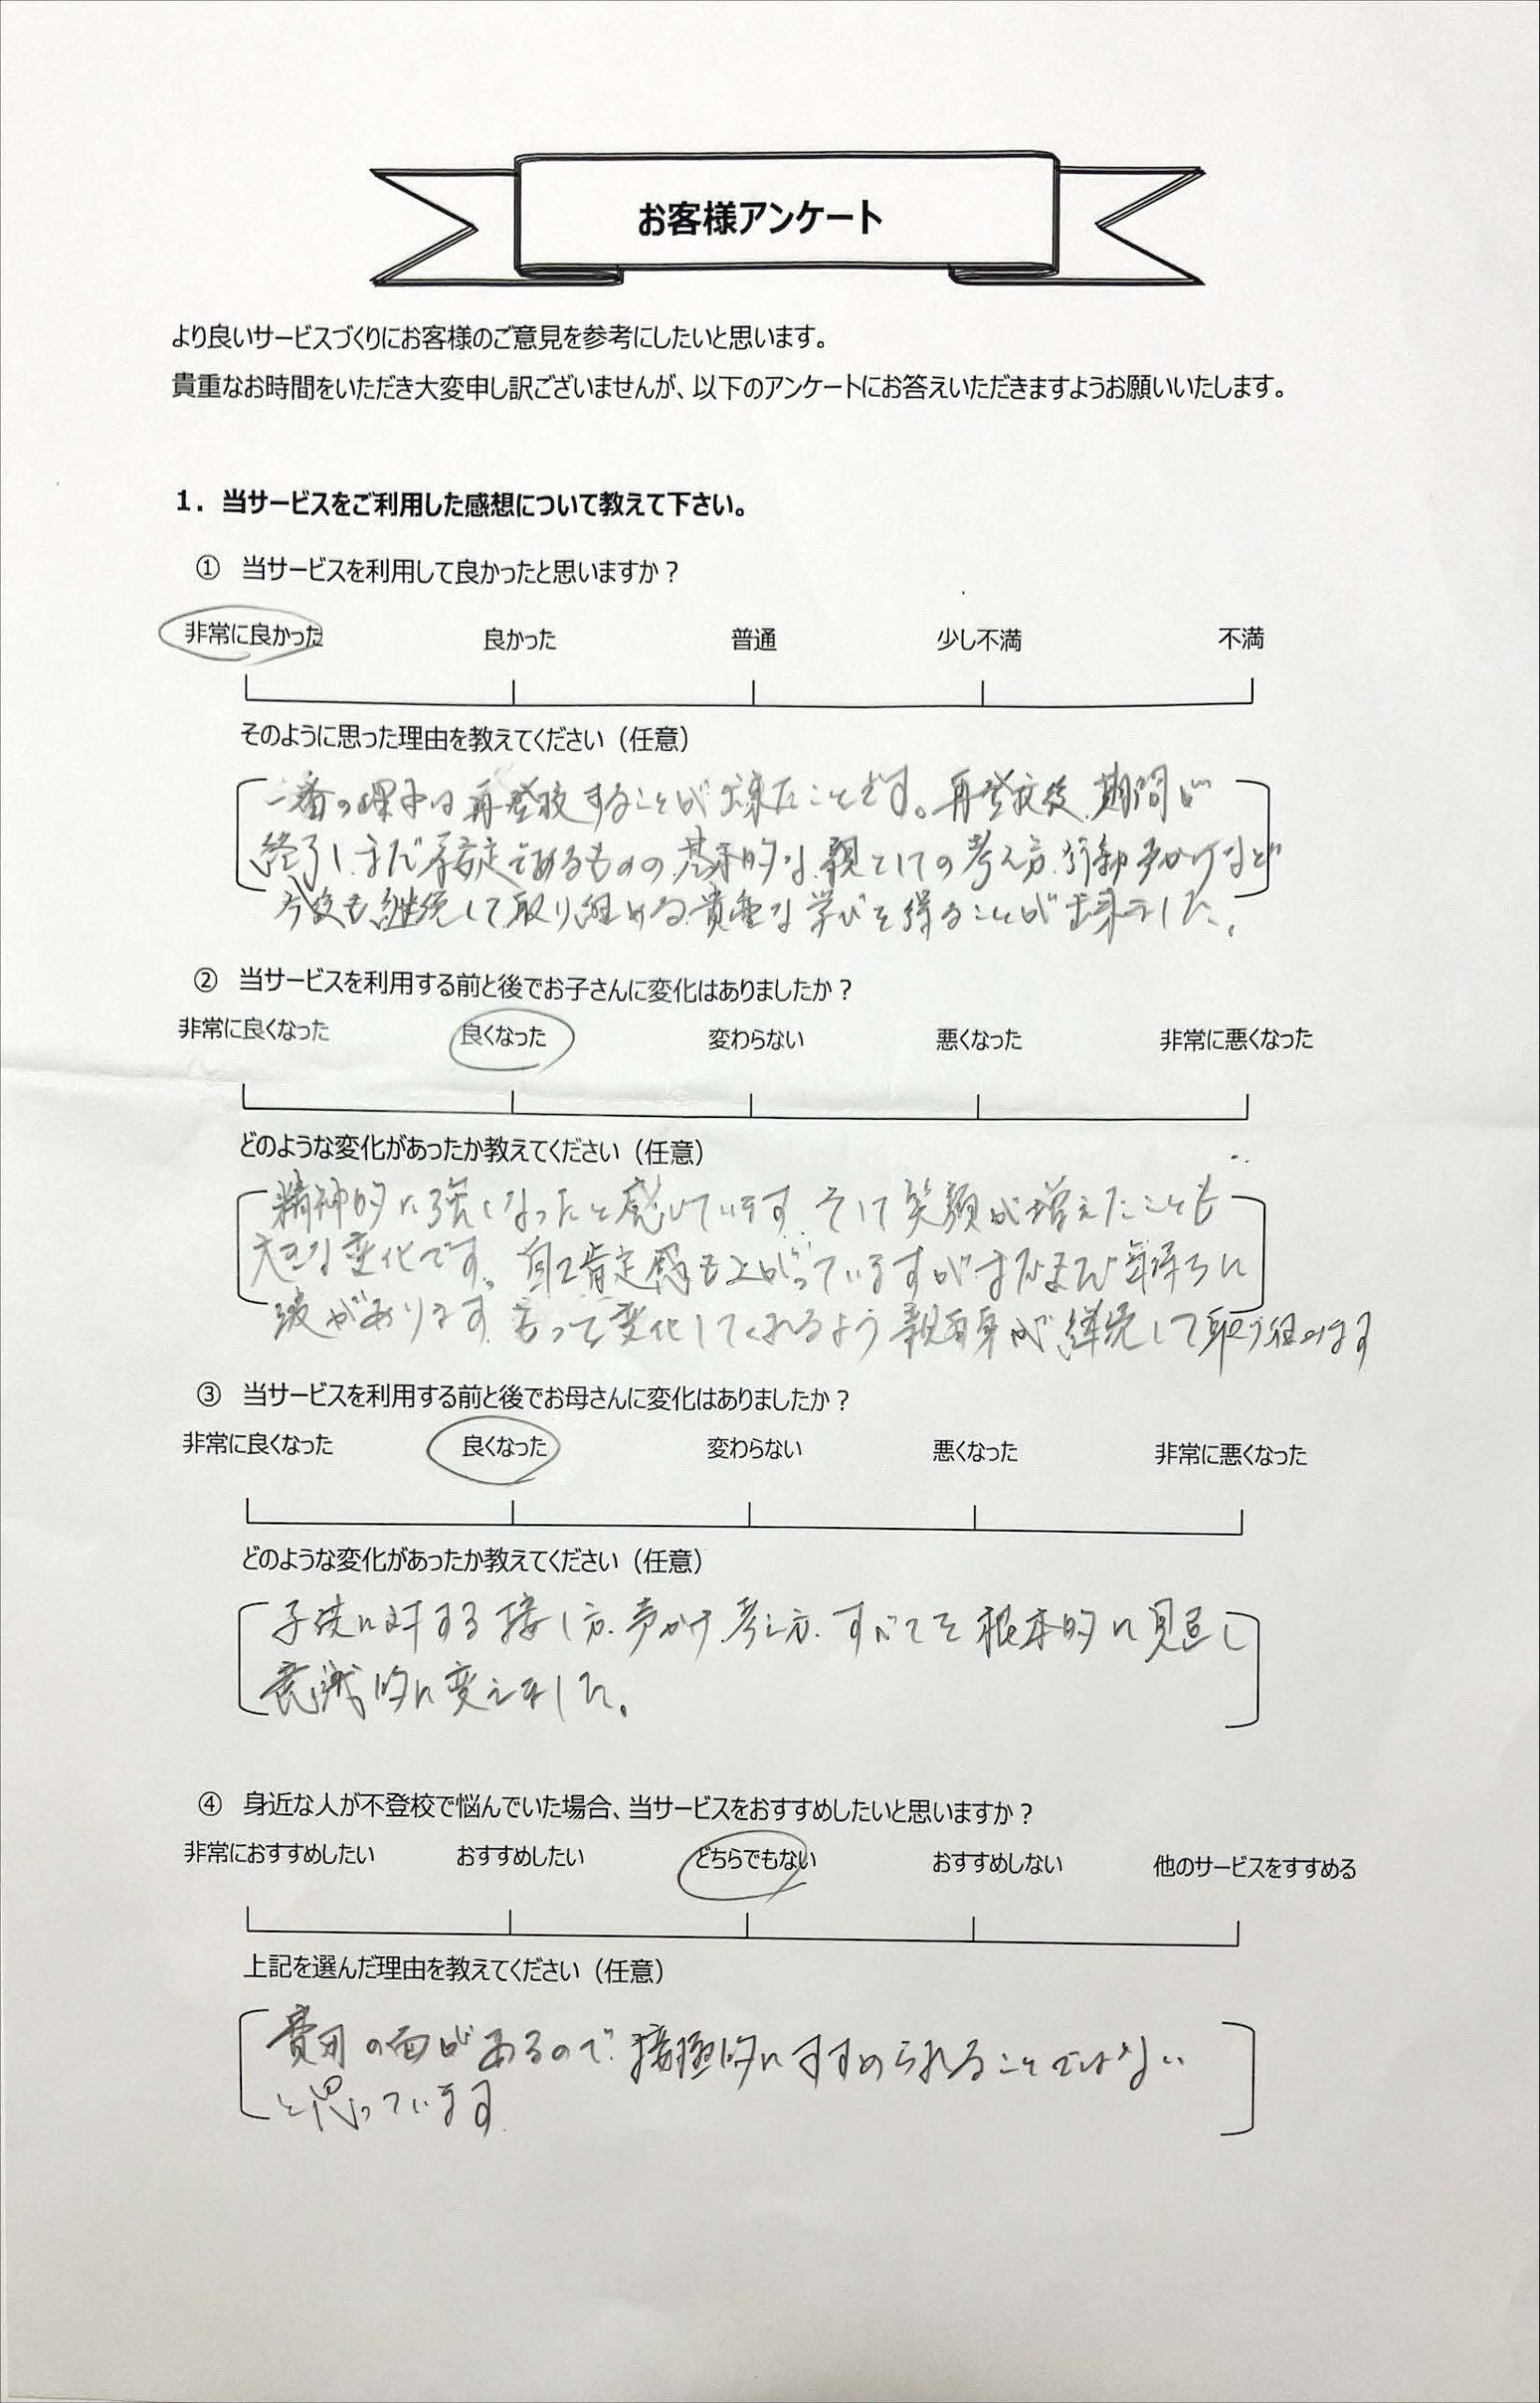 お客様アンケート
より良いサービスづくりにお客様のご意見を参考にしたいと思います。
貴重なお時間をいただき大変申し訳ございませんが、以下のアンケートにお答えいただきますようお願いいたします。
1. 当サービスをご利用した感想について教えて下さい。
① 当サービスを利用して良かったと思いますか?
非常に良かった 良かった 普通 少し不満 不満
そのように思った理由を教えてください(任意)
一番の理由は再登校することが出来たことです。再登校後、期間が
終了し、まだ不安定であるものの、基本的な、親としての考え方、行動、声かけなど
今後も継続して取り組める貴重な学びを得ることが出来ました。
② 当サービスを利用する前と後でお子さんに変化はありましたか?
非常に良くなった 良くなった 変わらない 悪くなった 非常に悪くなった
どのような変化があったか教えてください(任意)
精神的に強くなったと感じています。そして笑顔が増えたことも
大きな変化です。自己肯定感も上がっていますがまだまだ気持ちに
波があります。 変化してくれるよう親自身が継続して取り組みます
③ 当サービスを利用する前と後でお母さんに変化はありましたか?
非常に良くなった 良くなった 変わらない 悪くなった 非常に悪くなった
どのような変化があったか教えてください(任意)
子供に対する接し方、声かけ、考え方、すべてを根本的に見直し
意識的に変えました。
④ 身近な人が不登校で悩んでいた場合、当サービスをおすすめしたいと思いますか?
非常におすすめしたい おすすめしたい どちらでもない おすすめしない 他のサービスをすすめる
上記を選んだ理由を教えてください(任意)
費用の面があるので、積極的にすすめられることではない
と思っています